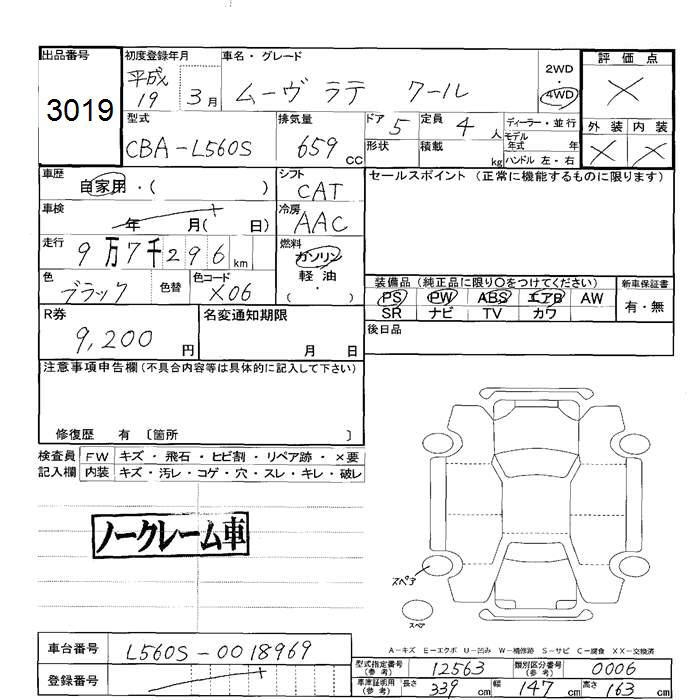 出品番号
3019
初度登録年月
平成
19 3月
車名・グレード
ムーヴ ラテ クール
2WD
・
4WD
評価点
X
外装 内装
X X
型式
CBA-L560S
排気量
659 cc
ドア 5
定員 4 人
形状
積載 kg
ディーラー・並行
モデル
年式 年
ハンドル 左・右
車歴
自家用・( )
シフト
CAT
車検
年 月( 日)
冷房
AAC
走行
9万7千296 km
燃料
ガソリン
軽油
( ・ )
色
ブラック
色替
色コード
X06
セールスポイント (正常に機能するものに限ります)
装備品 (純正品に限り〇をつけてください)
PS PW ABS エアB AW
SR ナビ TV カワ
新車保証書
有・無
後日品
R券
9,200 円
名変通知期限
月 日
注意事項申告欄 (不具合内容等は具体的に記入して下さい)
修復歴 有 〔箇所 〕
検査員
記入欄
FW キズ・飛石・ヒビ割・リペア跡・×要
内装 キズ・汚レ・コゲ・穴・スレ・キレ・破レ
ノークレーム車
スペア
スペア
A-キズ E-エクボ U-凹み W-補修跡 S-サビ C-腐食 XX-交換済
車台番号 L560S-0018969
登録番号
型式指定番号
(参考)
12563
類別区分番号
(参考)
0006
車庫証明用
(参考)
長さ 339 cm
幅 147 cm
高さ 163 cm